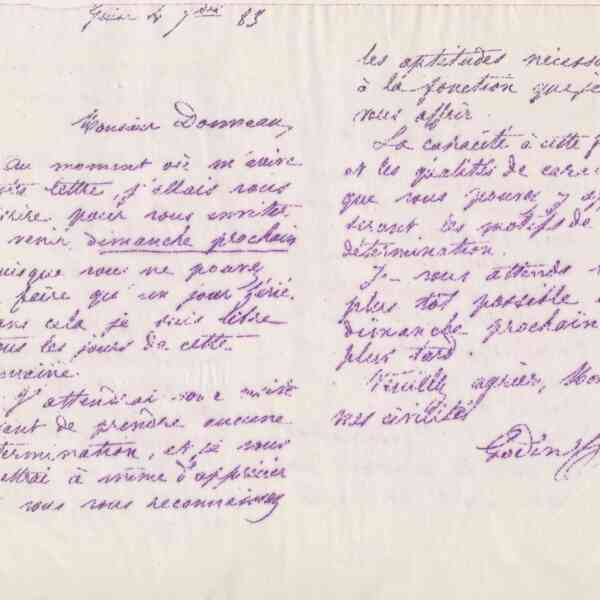 Guise le 7bre 83
Monsieur Donneau,
Au moment où m'arrive
lettre j'allais vous
écrire pour vous inviter
venir dimanche prochain
puisque vous ne pouvez
faire qu'un jour férié.
sans cela je suis libre
tous les jours de cette
semaine.
J'attendrai votre visite
avant de prendre aucune
détermination, et je vous
mettrai à même d'apprécier
vous vous reconnaissez
les aptitudes nécess
à la fonction que je
vous offrir.
La capacité à cette f
et les qualités de cara
que vous pouvez y ap
seront les motifs de
détermination.
Je vous attends
plus tôt possible
dimanche prochain
plus tard.
Veuillez agréer, Mon
mes civilités
Godin